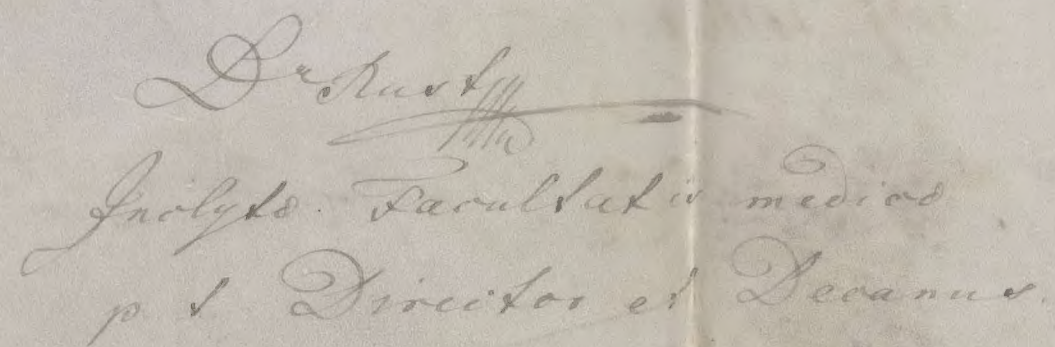 Dr Rust
Inclytæ Facultatis medicæ
p t Director et Decanus.